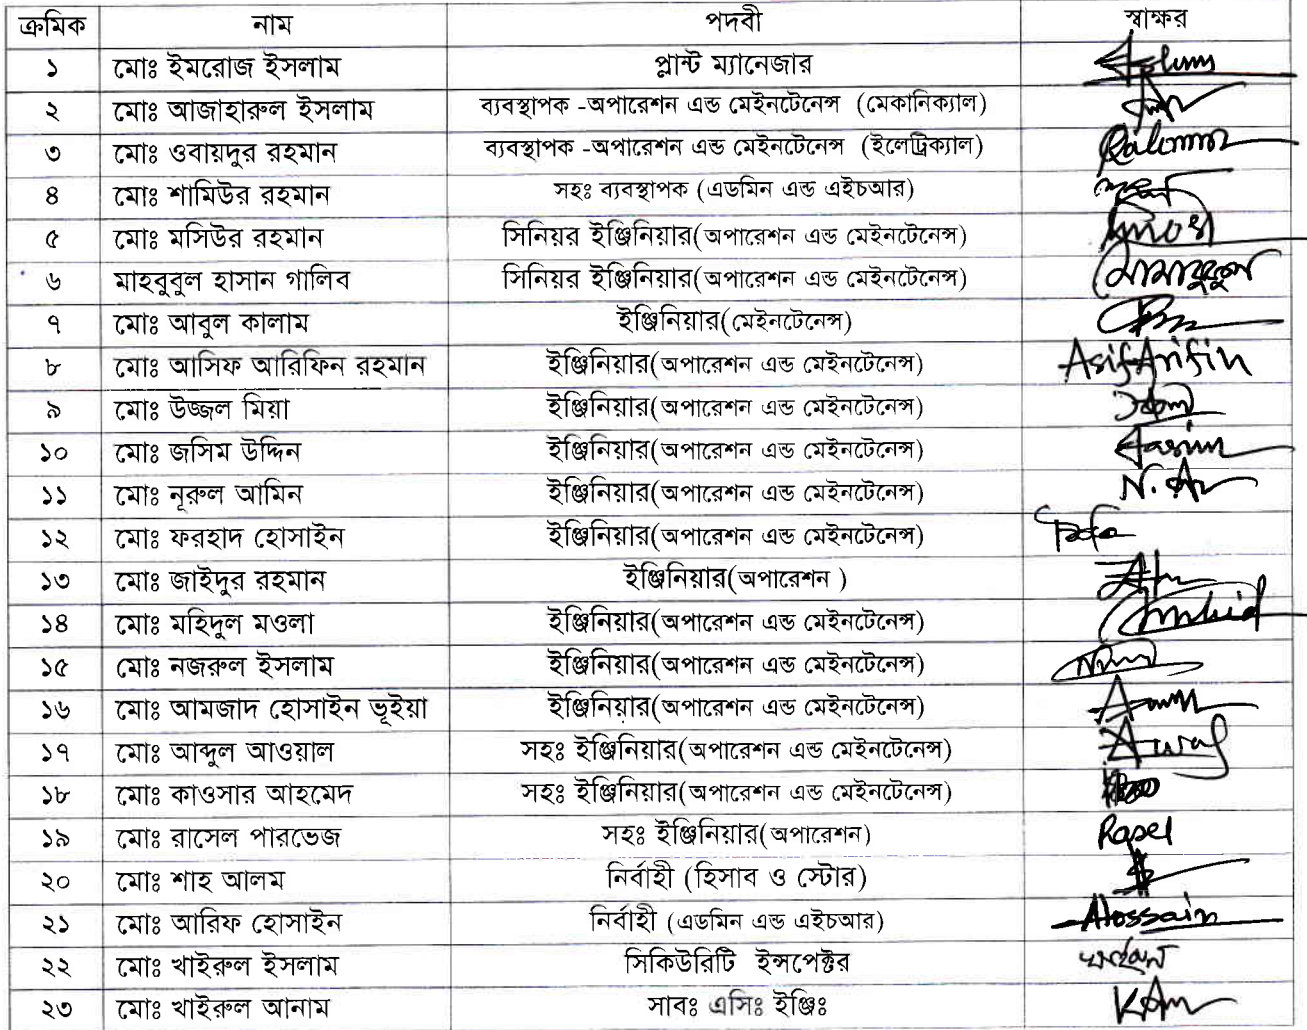 ক্রমিক নাম পদবী স্বাক্ষর
১ মোঃ ইমরোজ ইসলাম প্লান্ট ম্যানেজার
২ মোঃ আজাহারুল ইসলাম ব্যবস্থাপক -অপারেশন এন্ড মেইনটেনেন্স (মেকানিক্যাল)
৩ মোঃ ওবায়দুর রহমান ব্যবস্থাপক -অপারেশন এন্ড মেইনটেনেন্স (ইলেট্রিক্যাল)
৪ মোঃ শামিউর রহমান সহঃ ব্যবস্থাপক (এডমিন এন্ড এইচআর)
৫ মোঃ মসিউর রহমান সিনিয়র ইঞ্জিনিয়ার(অপারেশন এন্ড মেইনটেনেন্স)
৬ মাহবুবুল হাসান গালিব সিনিয়র ইঞ্জিনিয়ার(অপারেশন এন্ড মেইনটেনেন্স)
৭ মোঃ আবুল কালাম ইঞ্জিনিয়ার(মেইনটেনেন্স)
৮ মোঃ আসিফ আরিফিন রহমান ইঞ্জিনিয়ার(অপারেশন এন্ড মেইনটেনেন্স) Asif Arifin
৯ মোঃ উজ্জল মিয়া ইঞ্জিনিয়ার(অপারেশন এন্ড মেইনটেনেন্স)
১০ মোঃ জসিম উদ্দিন ইঞ্জিনিয়ার(অপারেশন এন্ড মেইনটেনেন্স)
১১ মোঃ নূরুল আমিন ইঞ্জিনিয়ার(অপারেশন এন্ড মেইনটেনেন্স)
১২ মোঃ ফরহাদ হোসাইন ইঞ্জিনিয়ার(অপারেশন এন্ড মেইনটেনেন্স)
১৩ মোঃ জাইদুর রহমান ইঞ্জিনিয়ার(অপারেশন )
১৪ মোঃ মহিদুল মওলা ইঞ্জিনিয়ার(অপারেশন এন্ড মেইনটেনেন্স)
১৫ মোঃ নজরুল ইসলাম ইঞ্জিনিয়ার(অপারেশন এন্ড মেইনটেনেন্স)
১৬ মোঃ আমজাদ হোসাইন ভূইয়া ইঞ্জিনিয়ার(অপারেশন এন্ড মেইনটেনেন্স)
১৭ মোঃ আব্দুল আওয়াল সহঃ ইঞ্জিনিয়ার(অপারেশন এন্ড মেইনটেনেন্স)
১৮ মোঃ কাওসার আহমেদ সহঃ ইঞ্জিনিয়ার(অপারেশন এন্ড মেইনটেনেন্স)
১৯ মোঃ রাসেল পারভেজ সহঃ ইঞ্জিনিয়ার(অপারেশন) Rasel
২০ মোঃ শাহ আলম নির্বাহী (হিসাব ও স্টোর)
২১ মোঃ আরিফ হোসাইন নির্বাহী (এডমিন এন্ড এইচআর) AHossain
২২ মোঃ খাইরুল ইসলাম সিকিউরিটি ইন্সপেক্টর
২৩ মোঃ খাইরুল আনাম সাবঃ এসিঃ ইঞ্জিঃ